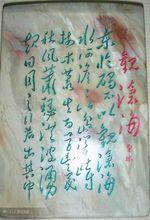 觀滄海
东临碣石以觀滄海
水何澹澹山岛竦峙
树木丛生百草丰茂
秋风萧瑟洪波涌
起日月之行若出其中